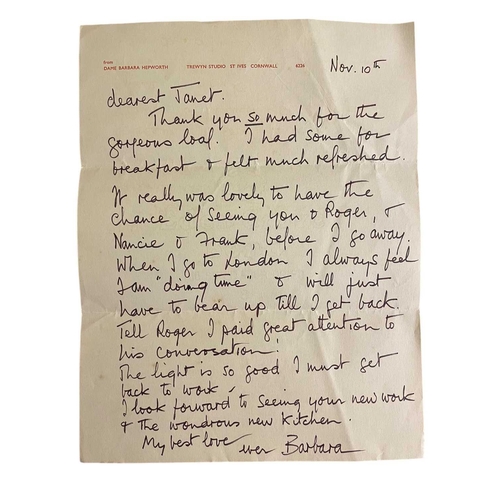 from
DAME BARBARA HEPWORTH TREWYN STUDIO ST IVES CORNWALL 6226
Nov. 10th
dearest Janet.
Thank you so much for the
gorgeous loaf. I had some for
breakfast & felt much refreshed.
It really was lovely to have the
chance of seeing you & Roger, &
Nancie & Frank, before I go away.
When I go to London I always feel
I am "doing time" & will just
have to bear up till I get back.
Tell Roger I paid great attention to
his conversation!
The light is so good I must get
back to work.
I look forward to seeing your new work
& the wondrous new kitchen.
My best love
ever Barbara